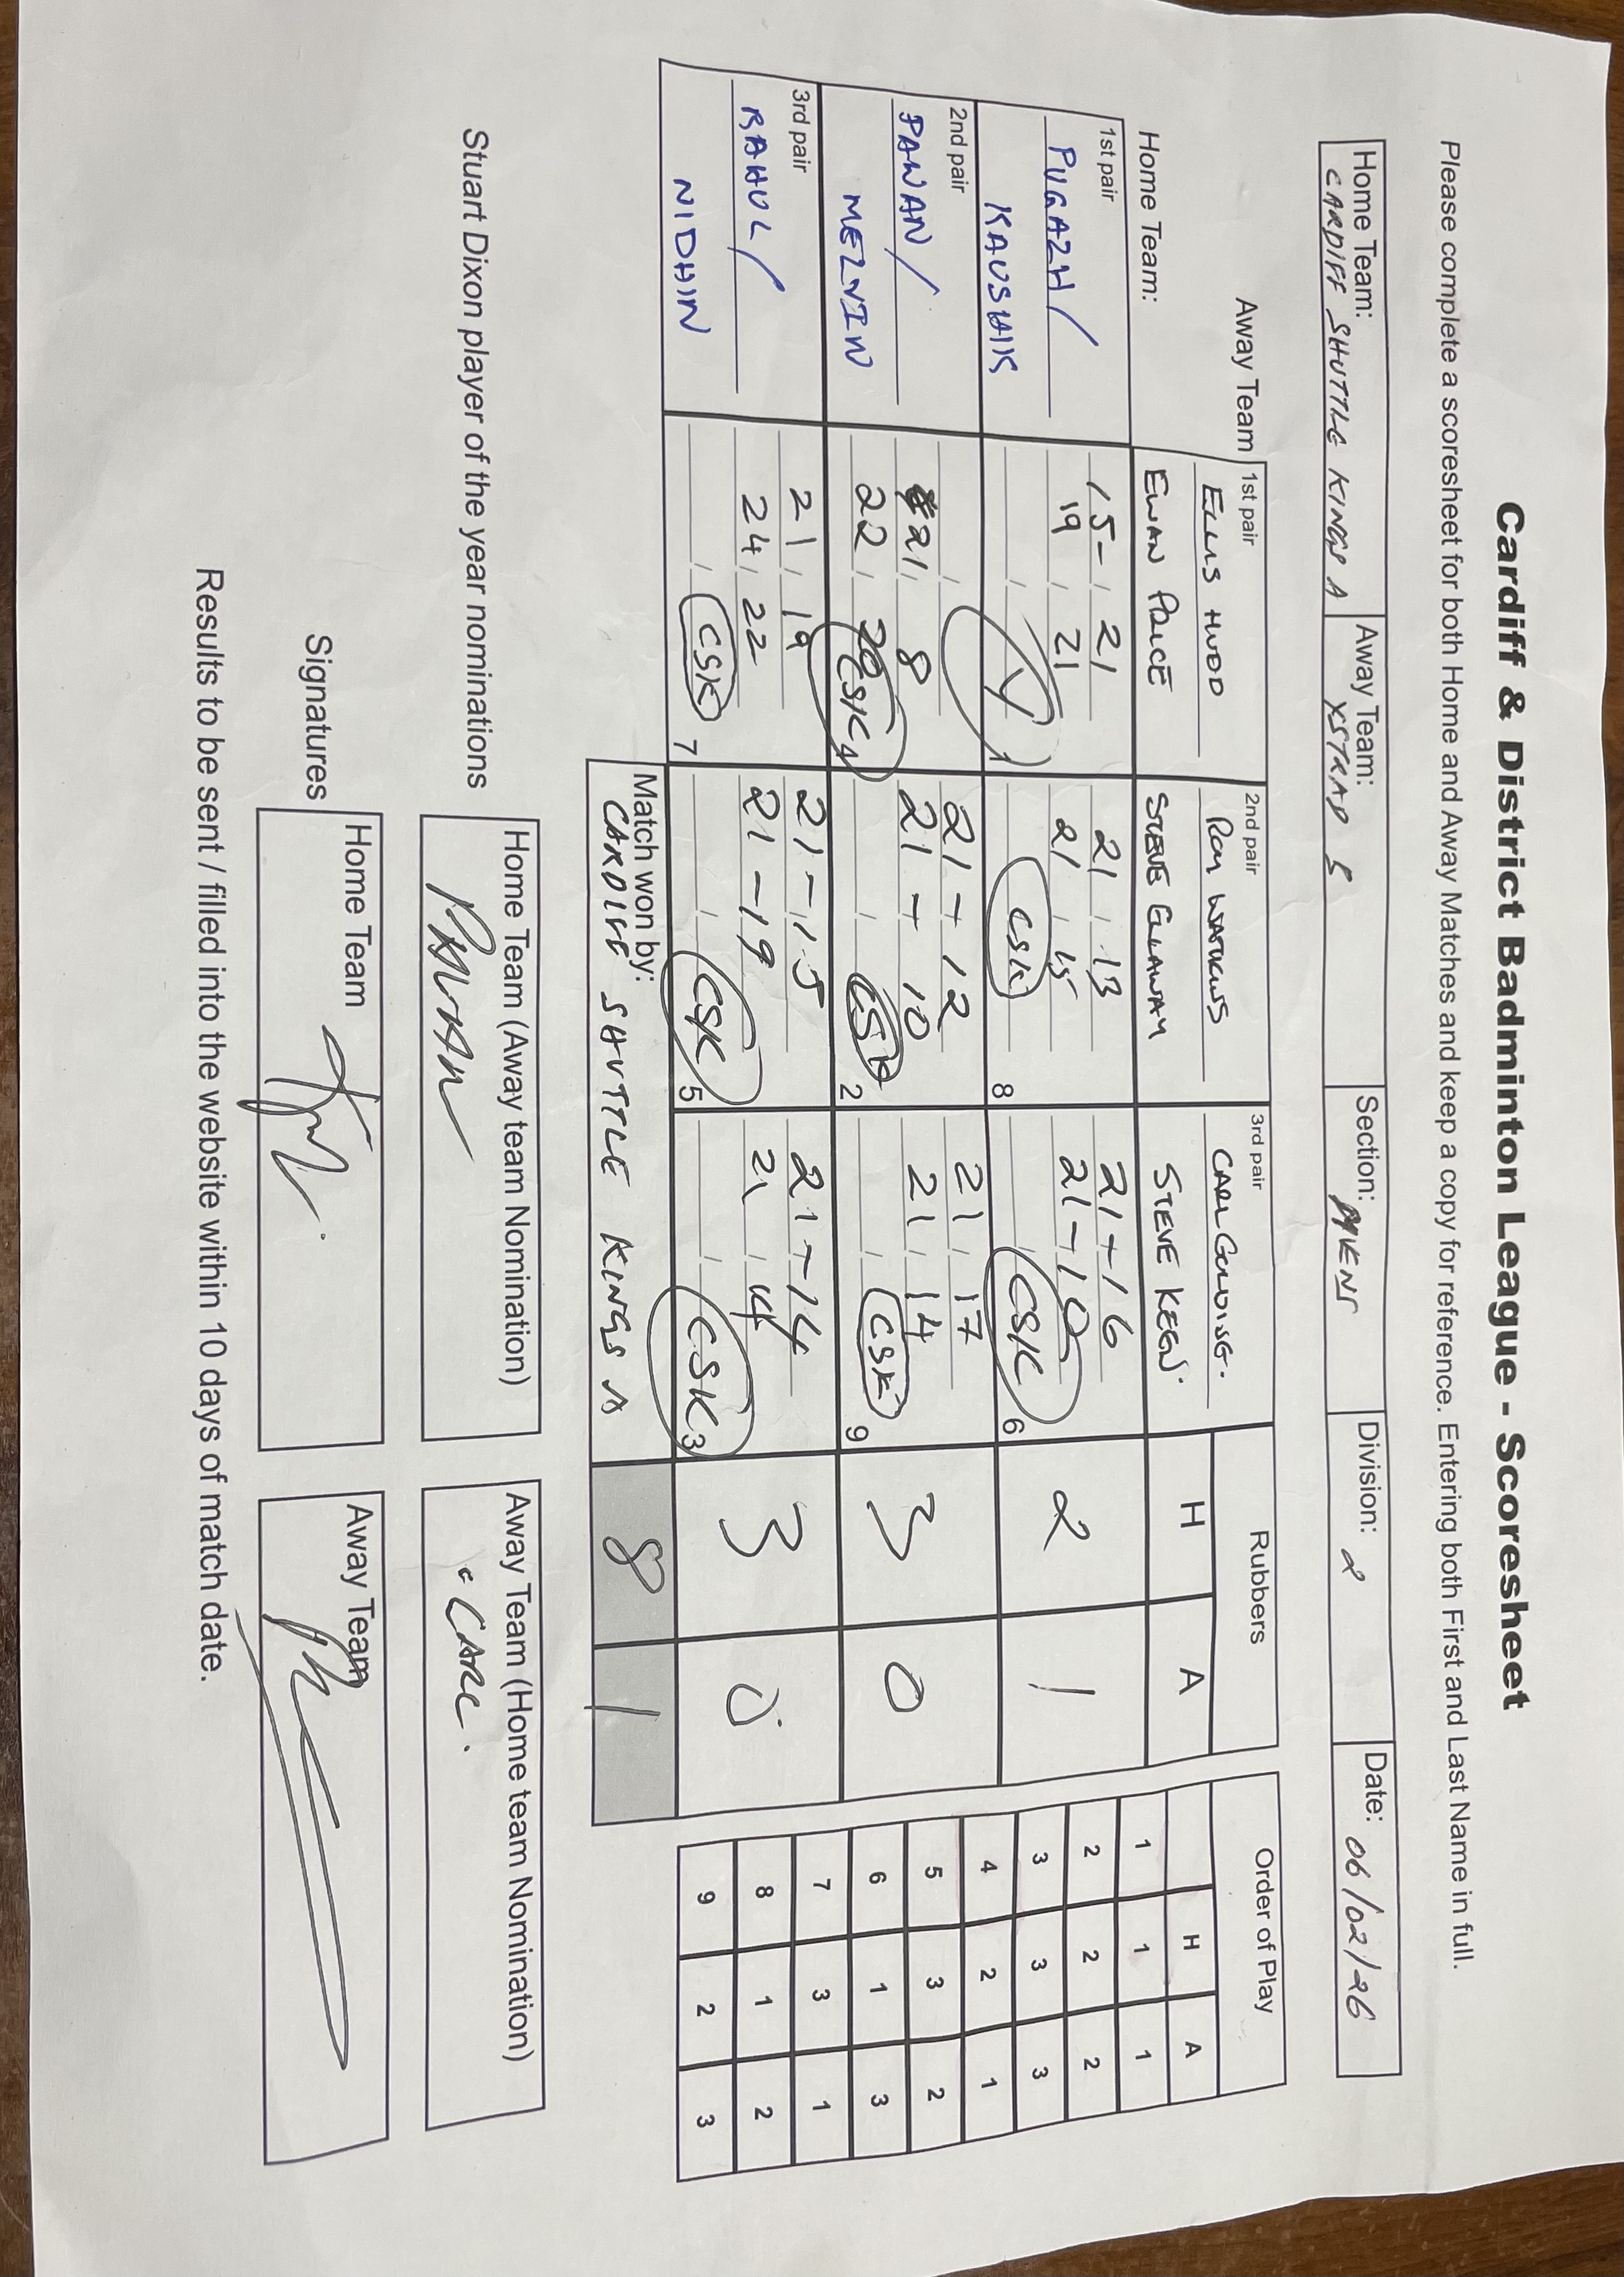 Cardiff & District Badminton League - Scoresheet
Please complete a scoresheet for both Home and Away Matches and keep a copy for reference. Entering both First and Last Name in full.
Home Team: CARDIFF SHUTTLE KINGS A
Away Team: YSTRAD 5
Section: MENS
Division: 2
Date: 06/02/26
Away Team
1st pair ELLIS HUDD
EWAN PRICE
2nd pair
STEVE
3rd pair CARL GOULDING.
STEVE KEGN.
Rubbers
H A
Home Team:
1st pair
PUGAZH /
KAUSHIK
15-, 21
19 , 21
Y
1
21 , 13
21 , 15
CSK
8
21 - 16
21 - 10
CSK
6
2 1
2nd pair
PAWAN /
MELVIN
21, 8
22, 20
CSK
4
21 - 12
21 - 10
CSK
2
21 , 17
21 , 14
CSK
9
3 0
3rd pair
RAHUL /
NIDHIN
21 , 19
24, 22
CSK
7
21 - 15
21 - 19
CSK
5
21 - 14
21 , 14
CSK
3
3 0
Match won by:
CARDIFF SHUTTLE KINGS A
8 1
Order of Play
H A
1 1 1
2 2 2
3 3 3
4 2 1
5 3 2
6 1 3
7 3 1
8 1 2
9 2 3
Stuart Dixon player of the year nominations
Home Team (Away team Nomination)
PAWAN
Away Team (Home team Nomination)
CARL.
Signatures
Home Team
Away Team
Results to be sent / filled into the website within 10 days of match date.